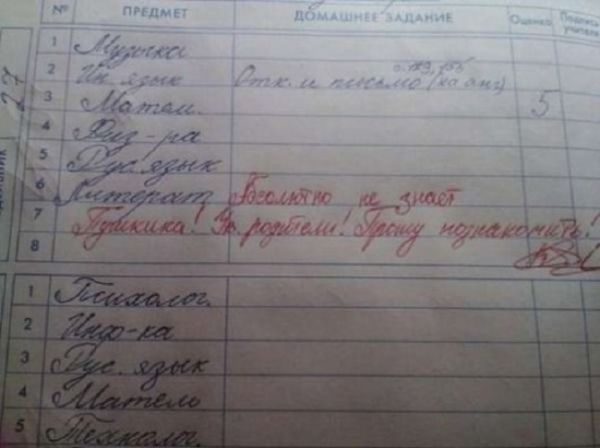 № ПРЕДМЕТ ДОМАШНЕЕ ЗАДАНИЕ Оценка Подпись учителя
1 Музыка
с. 129, 156
2 Ин. язык Отк. и письмо (на анг)
3 Матем. 5
4 Физ-ра
5 Рус. язык
6 Литерат Абсолютно не знает
7 Пушкина! Ув. родители! Прошу познакомить!
8
1 Психолог.
2 Инфо-ка
3 Рус. язык
4 Матем
5 Технолог.
27